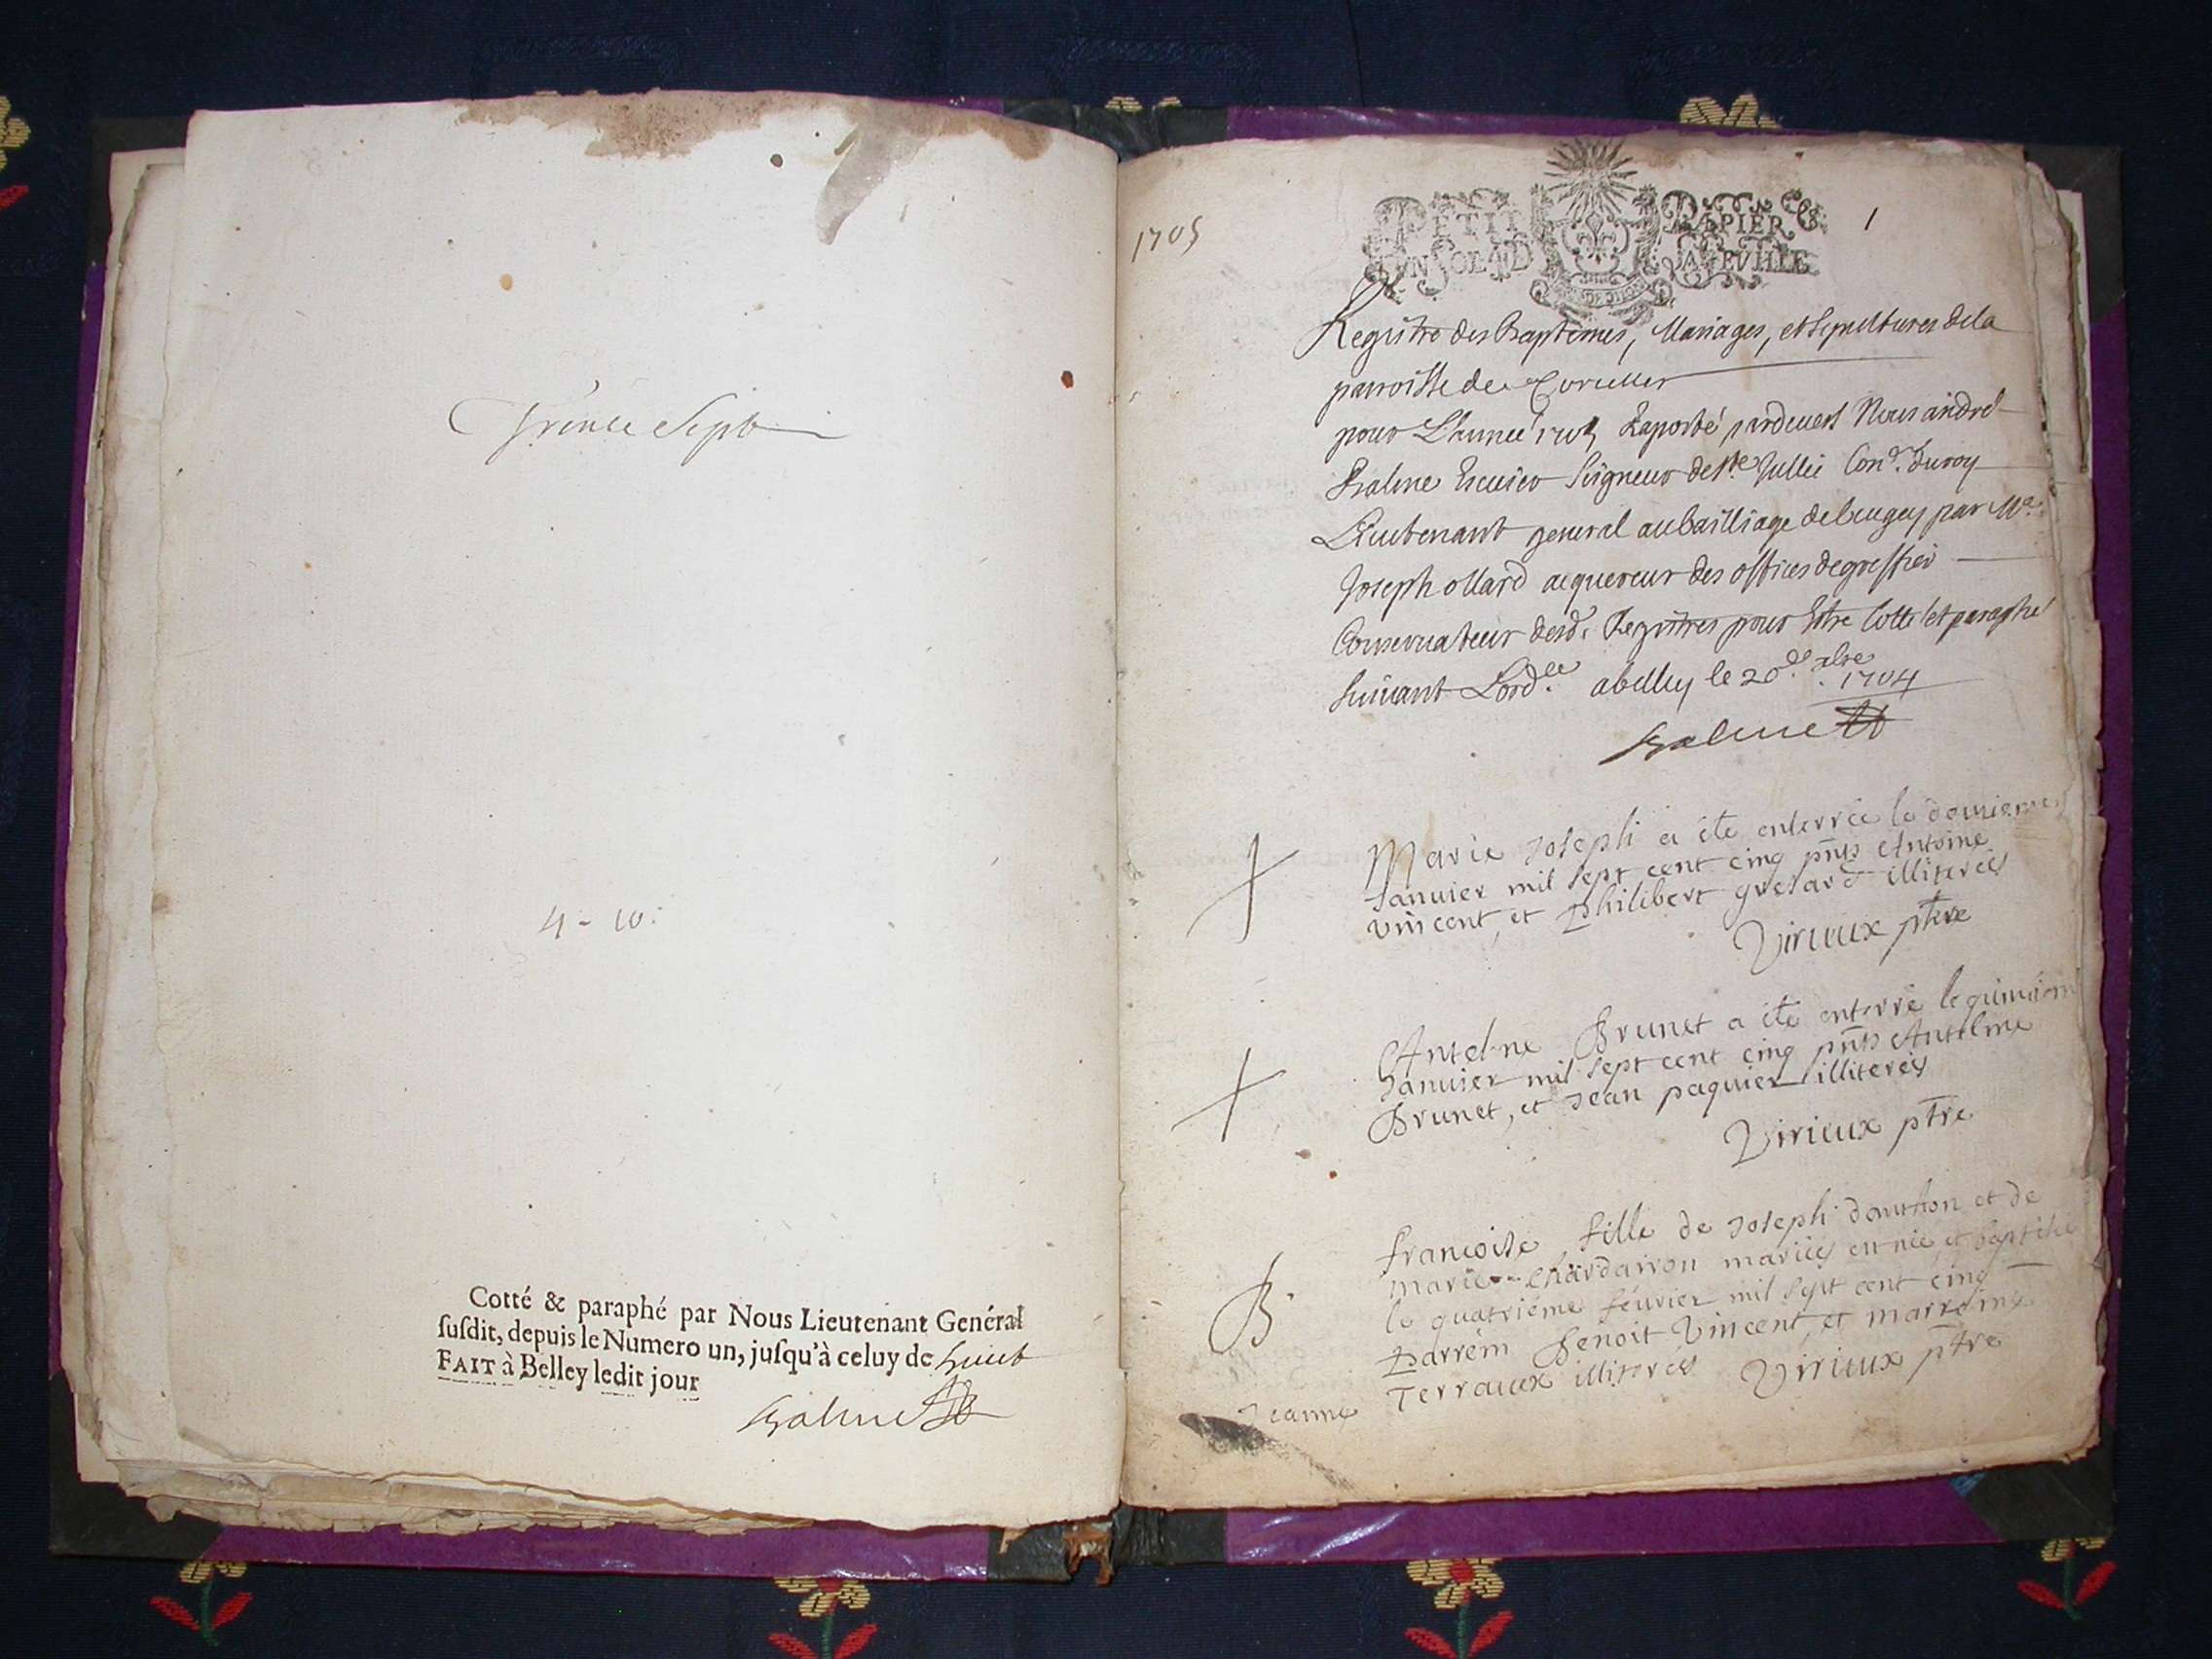 Trente Sept
4 - 10.
Cotté & paraphé par Nous Lieutenant Genéral
ſuſdit, depuis le Numero un, juſqu'à celuy de huict
FAIT à Belley ledit jour
Balme
1705
1
PETIT PAPIER
UN SOL
Registre des Baptêmes, Mariages, et Sepultures dela
parroisse de
pour L'année 1705 Raporté pardevant Nous andré
Balme Escuier Seigneur de Ste Jullie Conr. Du roy
Lieutenant general au bailliage de beugey par Me
Joseph ollard acquereur des offices de greffier
Conservateur desd. Registres pour Estre Cotté et paraphé
Suivant Lord.ce abelley le 20e xbre 1704
Balme
Marie Joseph a ete enterrée le deuxieme
Janvier mil sept cent cinq pnts Antoine
vincent, et philibert gresard illiterés
Virieux ptre
Antelme Brunet a ete enterré le
Janvier mil sept cent cinq pnts Antelme
Brunet, et Jean paquier illiterés
Virieux ptre
B
francoise fille de Joseph dauthon et de
marie Chardairon mariés est née et baptisée
le quatriéme février mil sept cent cinq
parrein Benoit Vincent, et marreine
Jeanne Terraux illiterés Virieux ptre